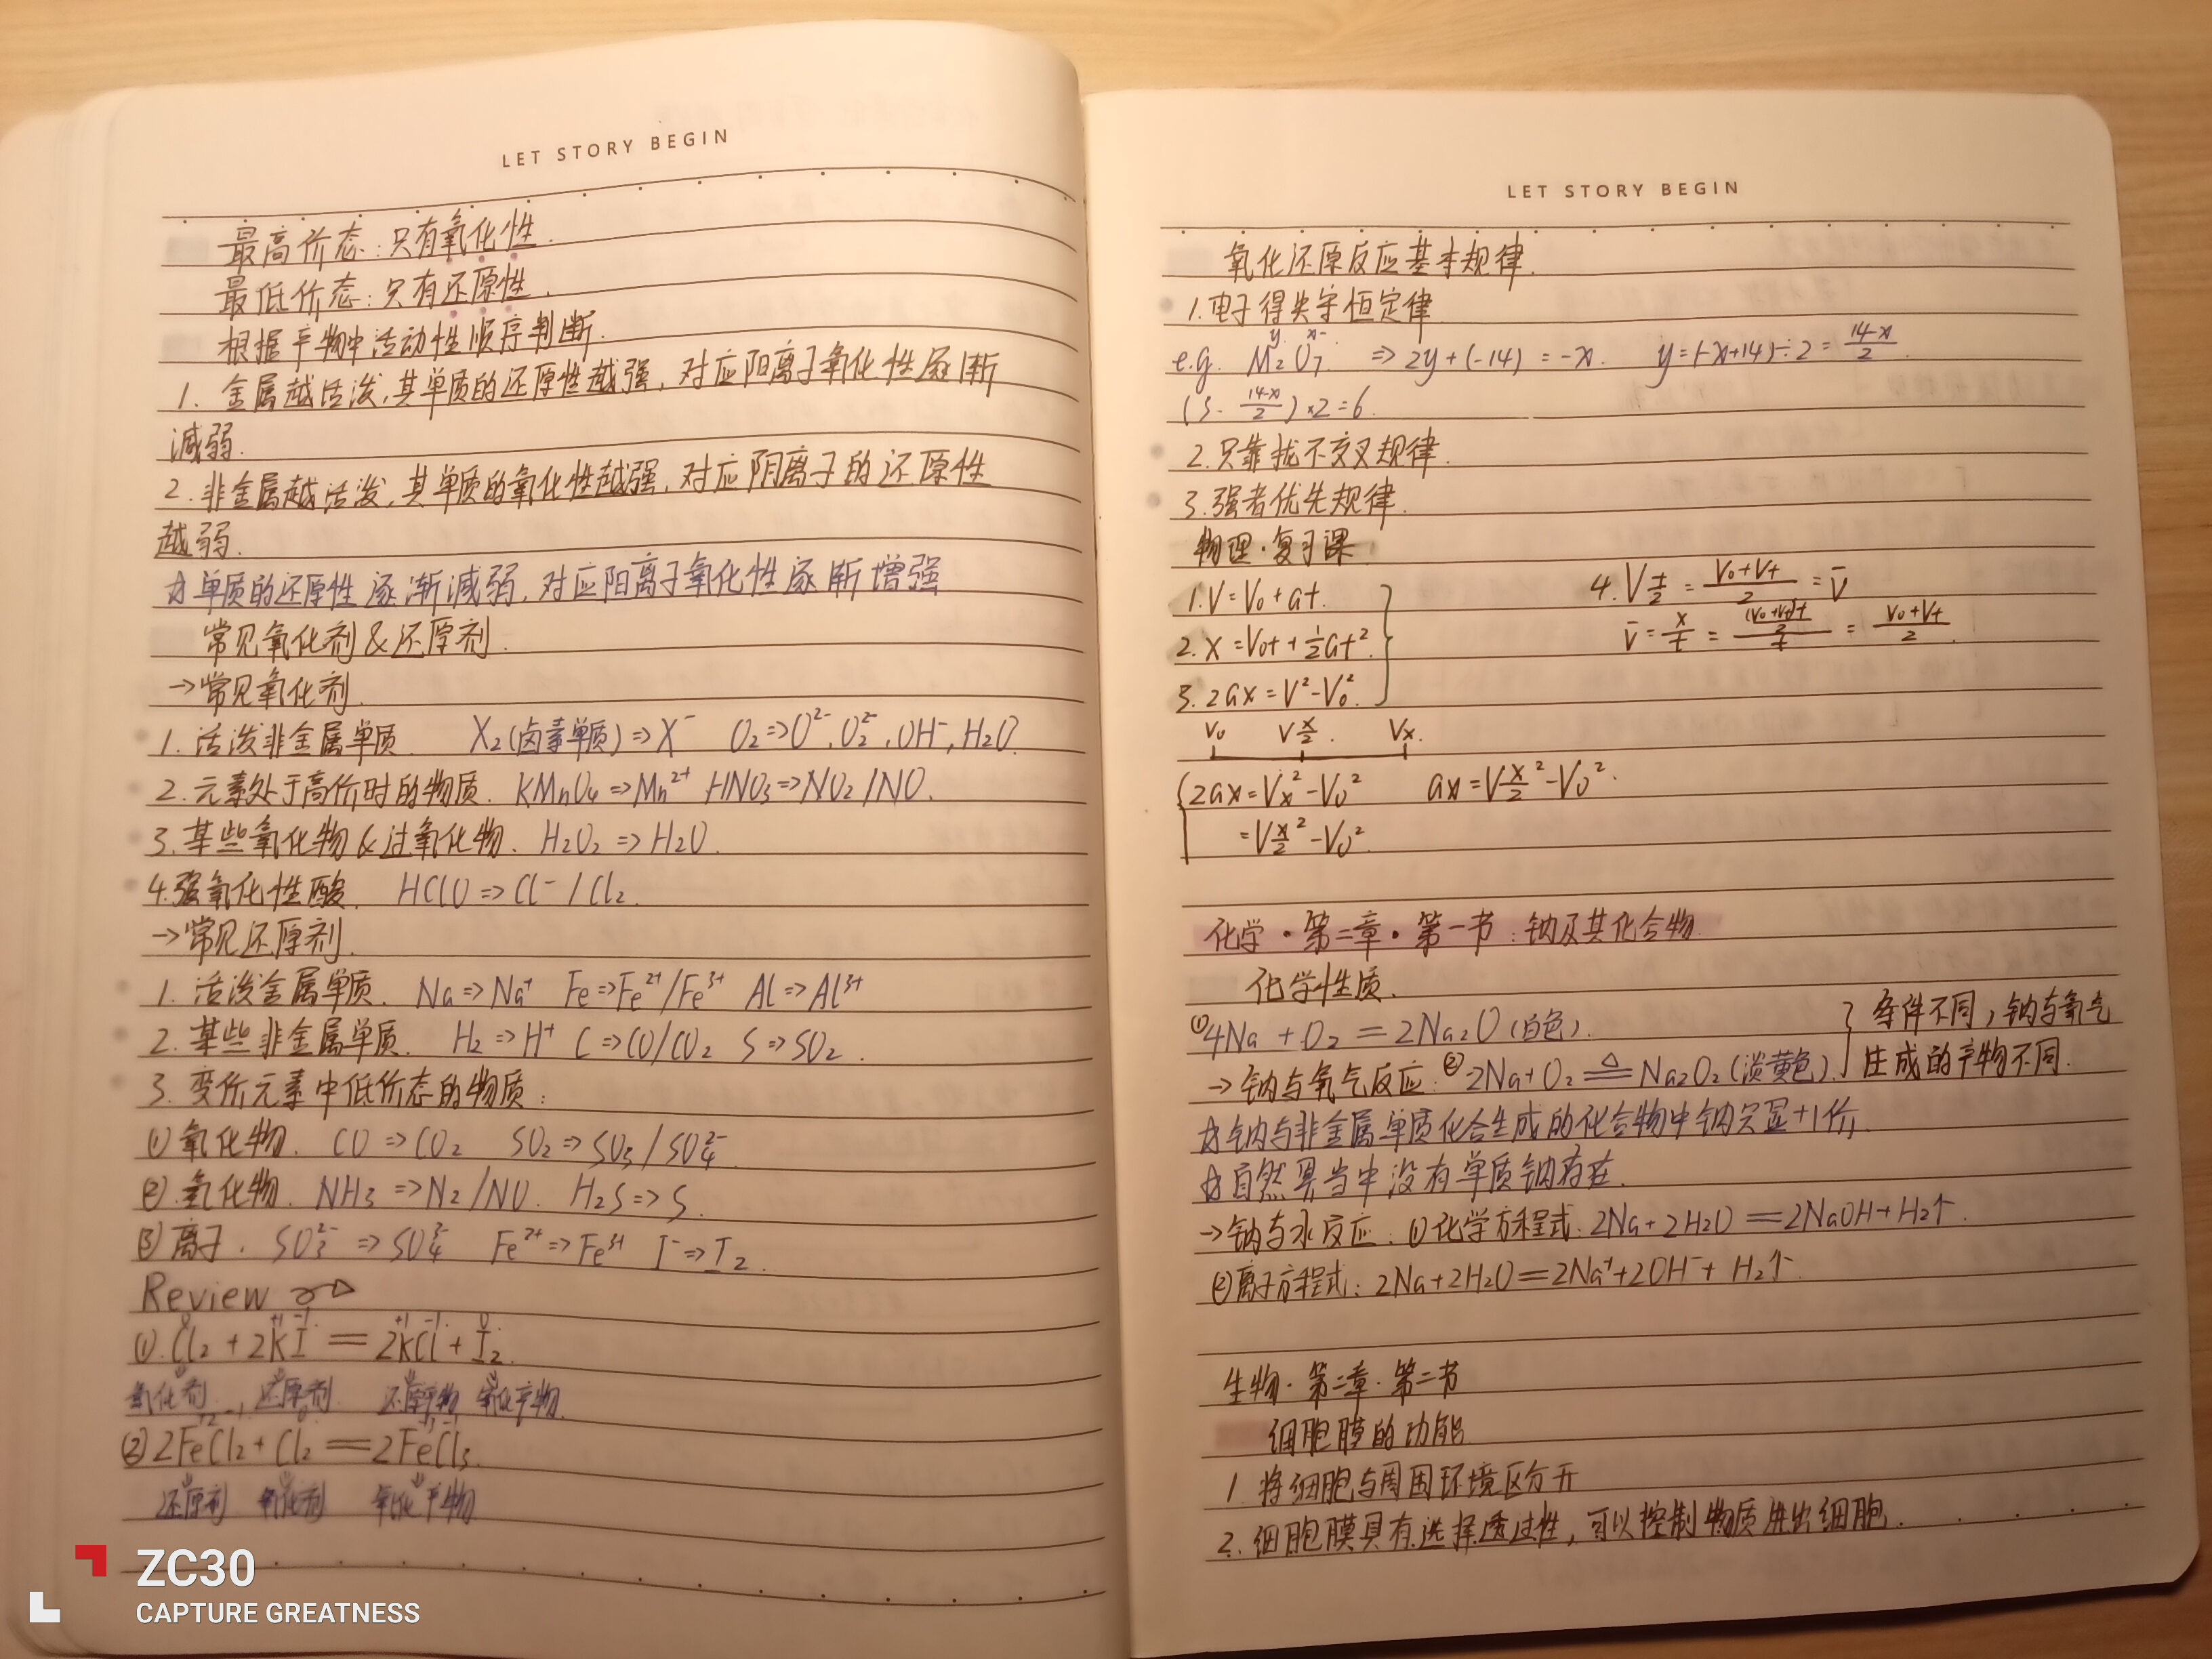 LET STORY BEGIN
最高价态:只有氧化性.
最低价态:只有还原性.
根据产物中活动性顺序判断.
1. 金属越活泼,其单质的还原性越强,对应阳离子氧化性逐渐
减弱.
2. 非金属越活泼,其单质的氧化性越强,对应阴离子的还原性
越弱.
☆单质的还原性逐渐减弱,对应阳离子氧化性逐渐增强
常见氧化剂&还原剂.
→常见氧化剂.
1. 活泼非金属单质. X₂(卤素单质)⇒X⁻ O₂⇒O²⁻,O₂²⁻,OH⁻,H₂O.
2. 元素处于高价时的物质. KMnO₄⇒Mn²⁺ HNO₃⇒NO₂/NO.
3. 某些氧化物&过氧化物. H₂O₂⇒H₂O.
4.强氧化性酸. HClO⇒Cl⁻/Cl₂.
→常见还原剂.
1. 活泼金属单质. Na⇒Na⁺ Fe⇒Fe²⁺/Fe³⁺ Al⇒Al³⁺
2. 某些非金属单质. H₂⇒H⁺ C⇒CO/CO₂ S⇒SO₂.
3. 变价元素中低价态的物质:
①氧化物. CO⇒CO₂ SO₂⇒SO₃/SO₄²⁻.
②.氢化物. NH₃⇒N₂/NO. H₂S⇒S.
③离子. SO₃²⁻⇒SO₄²⁻ Fe²⁺⇒Fe³⁺ I⁻⇒I₂.
Review
0 +1 -1 +1 -1 0
①.Cl₂+2KI=2KCl+I₂.
氧化剂. 还原剂. 还原产物 氧化产物.
+2 -1 0
②2FeCl₂+Cl₂=2FeCl₃.
还原剂 氧化剂 氧化产物
ZC30
CAPTURE GREATNESS
LET STORY BEGIN
氧化还原反应基本规律.
1.电子得失守恒定律
y x-
e.g. M₂O₇ ⇒2y+(-14)=-x. y=(-x+14)÷2=(14-x)/2.
(5-(14-x)/2)×2=6.
2.只靠拢不交叉规律.
3.强者优先规律.
物理·复习课
1.V=V₀+at.
2.x=V₀t+½at².
3.2ax=V²-V₀².
4.V t/2=(V₀+Vt)/2=V̄
V̄=x/t=((V₀+Vt)/2 t)/t=(V₀+Vt)/2.
V₀ V x/2. Vx.
2ax=Vx²-V₀² ax=V x/2²-V₀².
=V x/2²-V₀².
化学·第二章·第一节:钠及其化合物
化学性质.
①4Na+O₂=2Na₂O(白色).
→钠与氧气反应.②2Na+O₂≜Na₂O₂(淡黄色).
} 条件不同,钠与氧气
生成的产物不同.
☆钠与非金属单质化合生成的化合物中钠只显+1价,
☆自然界当中没有单质钠存在.
→钠与水反应:①化学方程式:2Na+2H₂O=2NaOH+H₂↑.
②离子方程式:2Na+2H₂O=2Na⁺+2OH⁻+H₂↑.
生物·第二章·第二节
细胞膜的功能
1.将细胞与周围环境区分开
2.细胞膜具有选择透过性,可以控制物质进出细胞.